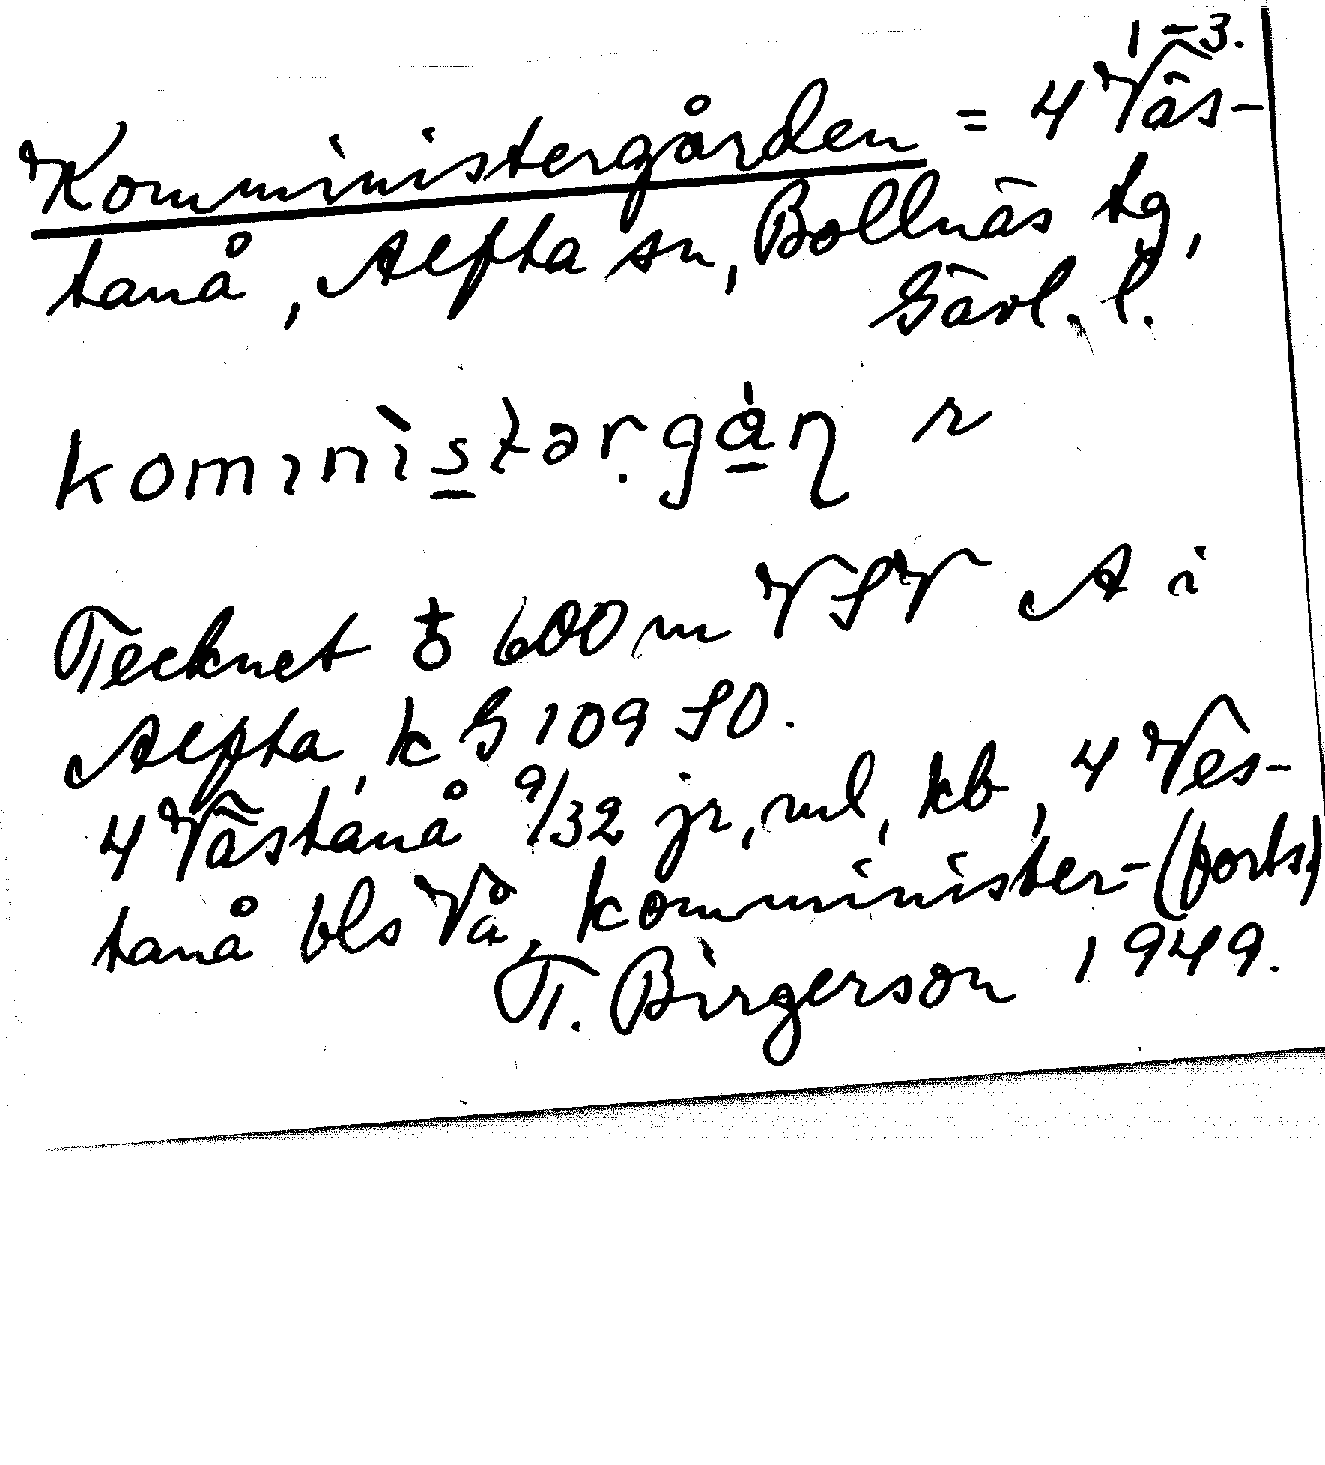 1-3.
Komministergården = 4 Väs-
tanå, Alfta sn, Bollnäs tg,
Gävl. l.
kominìstər.gạ̊ɳ r
Tecknet ♁ 600 m VSV A i
Alfta, k G 109 SO.
4 Västanå 9/32 jr, ml, kb, 4 Ves-
tanå bls Vå, komminister- (forts)
T. Birgerson 1949.